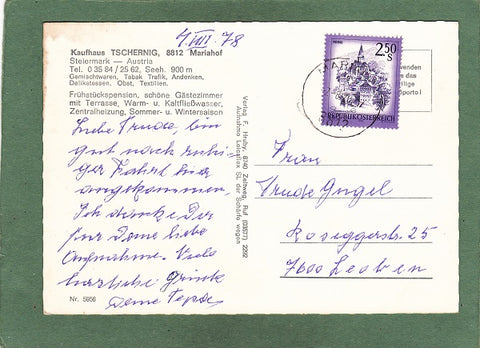 4. VIII 78
Kaufhaus TSCHERNIG, 8812 Mariahof
Steiermark — Austria
Tel. 0 35 84 / 25 62, Seeh. 900 m
Gemischtwaren, Tabak Trafik, Andenken,
Delikatessen, Obst, Textilien.
Frühstückspension, schöne Gästezimmer
mit Terrasse, Warm- u. Kaltfließwasser,
Zentralheizung, Sommer- u. Wintersaison
Liebe Trude, bin
gut nach ruhi-
ger Fahrt hier
angekommen.
Ich danke Dir
für Deine liebe
Aufnahme. Viele
herzliche Grüße
Deine
Nr. 5956
Verlag F. Hruby, 8740 Zeltweg, Ruf (03577) 2202
2.50
S
REPUBLIK ÖSTERREICH
MAR
8812
wenden
e das
eilige
porto!
Frau
Trude Gugel
Roseggerstr. 25
7600 Leoben